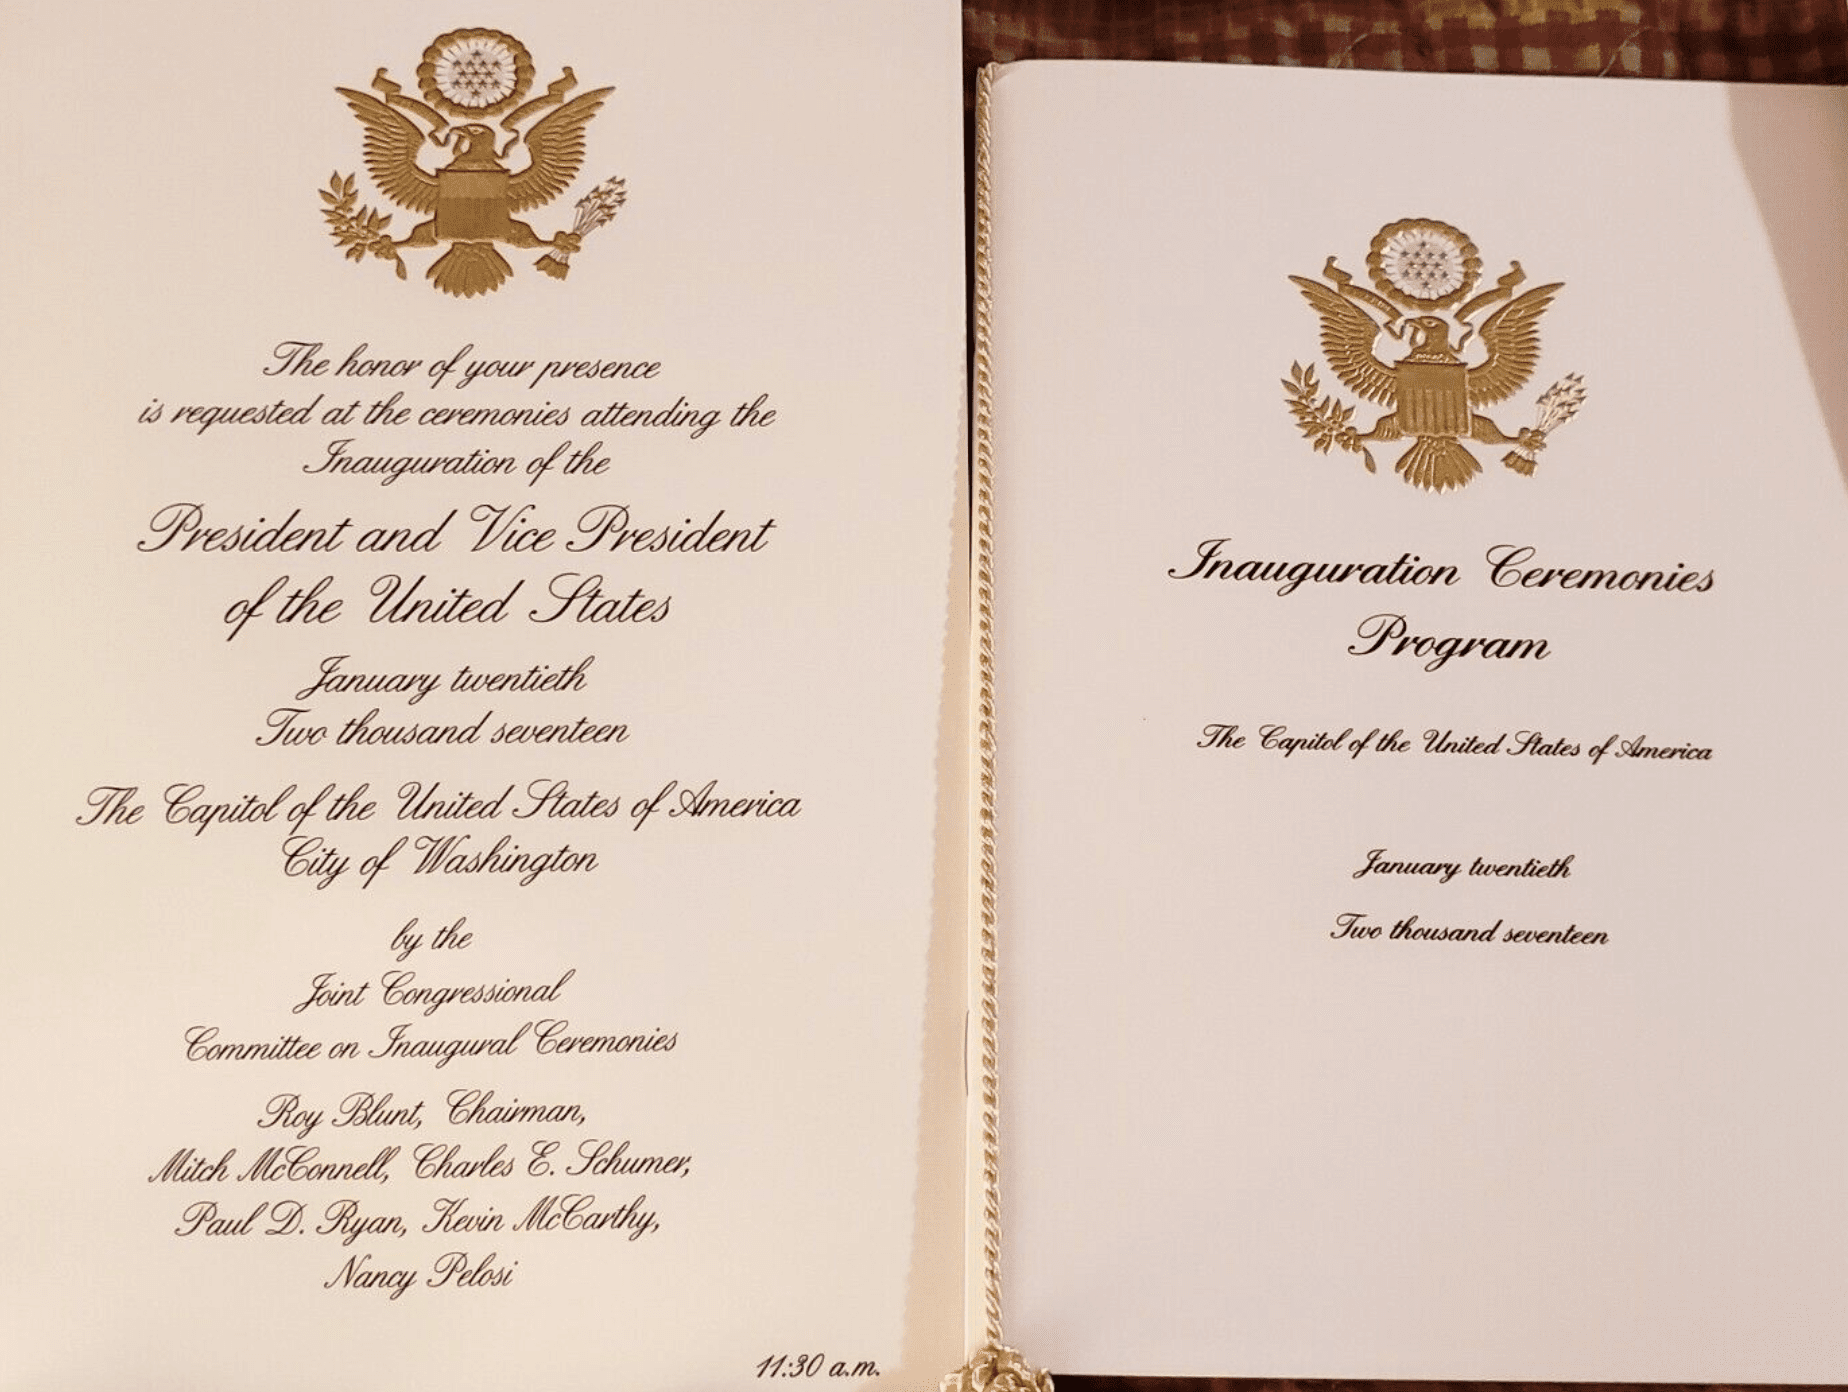 The honor of your presence
is requested at the ceremonies attending the
Inauguration of the
President and Vice President
of the United States
January twentieth
Two thousand seventeen
The Capitol of the United States of America
City of Washington
by the
Joint Congressional
Committee on Inaugural Ceremonies
Roy Blunt, Chairman,
Mitch McConnell, Charles E. Schumer,
Paul D. Ryan, Kevin McCarthy,
Nancy Pelosi
11:30 a.m.
Inauguration Ceremonies
Program
The Capitol of the United States of America
January twentieth
Two thousand seventeen